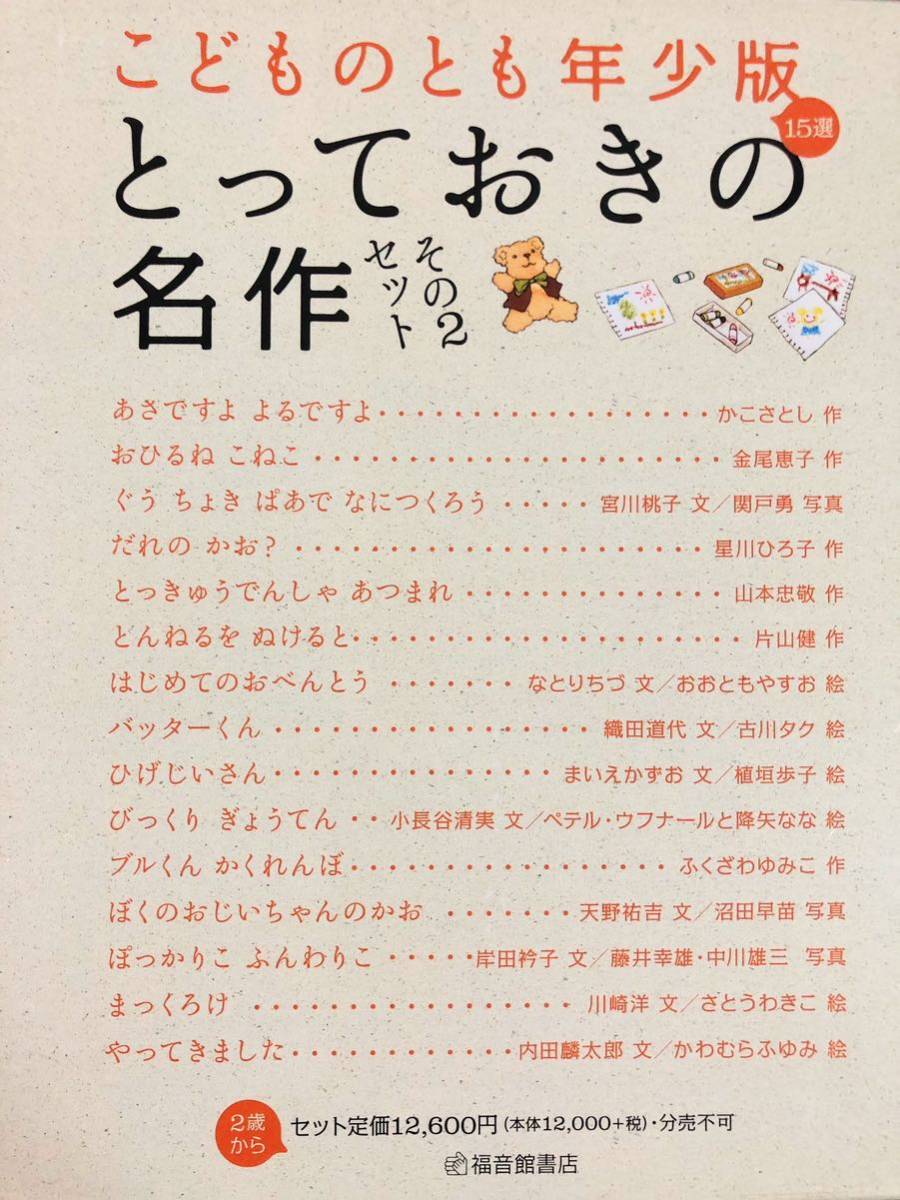 こどものとも年少版
15選
とっておきの
名作
その2
セット
あさですよ よるですよ・・・・・・・・・・・・・・・・・・・かこさとし 作
おひるね こねこ・・・・・・・・・・・・・・・・・・・・・・・金尾恵子 作
ぐう ちょき ぱあで なにつくろう・・・・・宮川桃子 文／関戸勇 写真
だれの かお？・・・・・・・・・・・・・・・・・・・・・・・星川ひろ子 作
とっきゅうでんしゃ あつまれ・・・・・・・・・・・・・・・山本忠敬 作
とんねるを ぬけると・・・・・・・・・・・・・・・・・・・・・・片山健 作
はじめてのおべんとう・・・・・・・なとりちづ 文／おおともやすお 絵
バッターくん・・・・・・・・・・・・・・・・・・織田道代 文／古川タク 絵
ひげじいさん・・・・・・・・・・・・・・・・まいえかずお 文／植垣歩子 絵
びっくり ぎょうてん・・小長谷清実 文／ペテル・ウフナールと降矢なな 絵
ブルくん かくれんぼ・・・・・・・・・・・・・・・・・・ふくざわゆみこ 作
ぼくのおじいちゃんのかお・・・・・・・天野祐吉 文／沼田早苗 写真
ぽっかりこ ふんわりこ・・・・・岸田衿子 文／藤井幸雄・中川雄三 写真
まっくろけ・・・・・・・・・・・・・・・・・・川崎洋 文／さとうわきこ 絵
やってきました・・・・・・・・・・・・・内田麟太郎 文／かわむらふゆみ 絵
2歳
から
セット定価12,600円(本体12,000+税)・分売不可
福音館書店